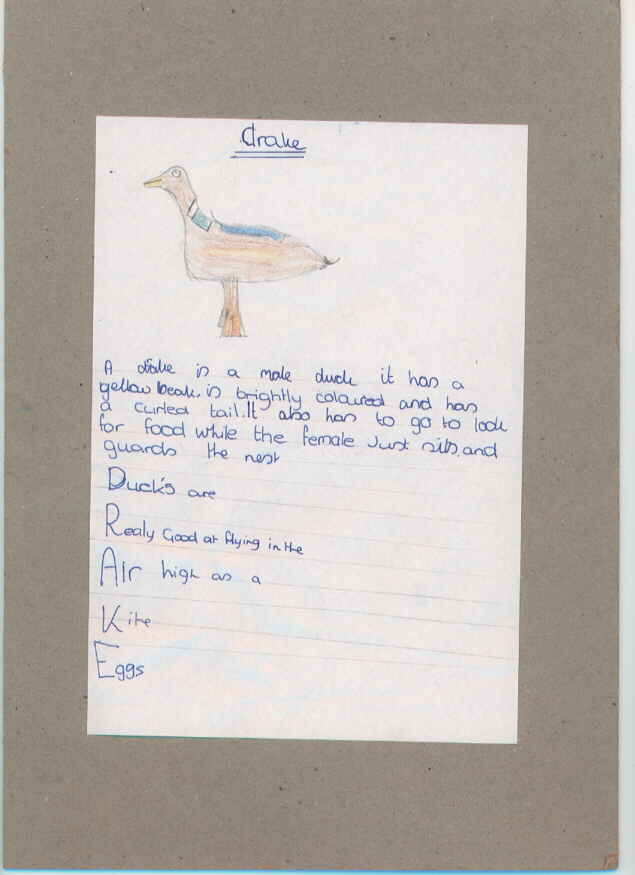 drake
A drake is a male duck it has a
yellow beak. is brightly coloured and has
a curled tail. It also has to go to look
for food while the female Just sits and
guards the nest
Duck's are
Realy Good at flying in the
AIr high as a
Kite
Eggs